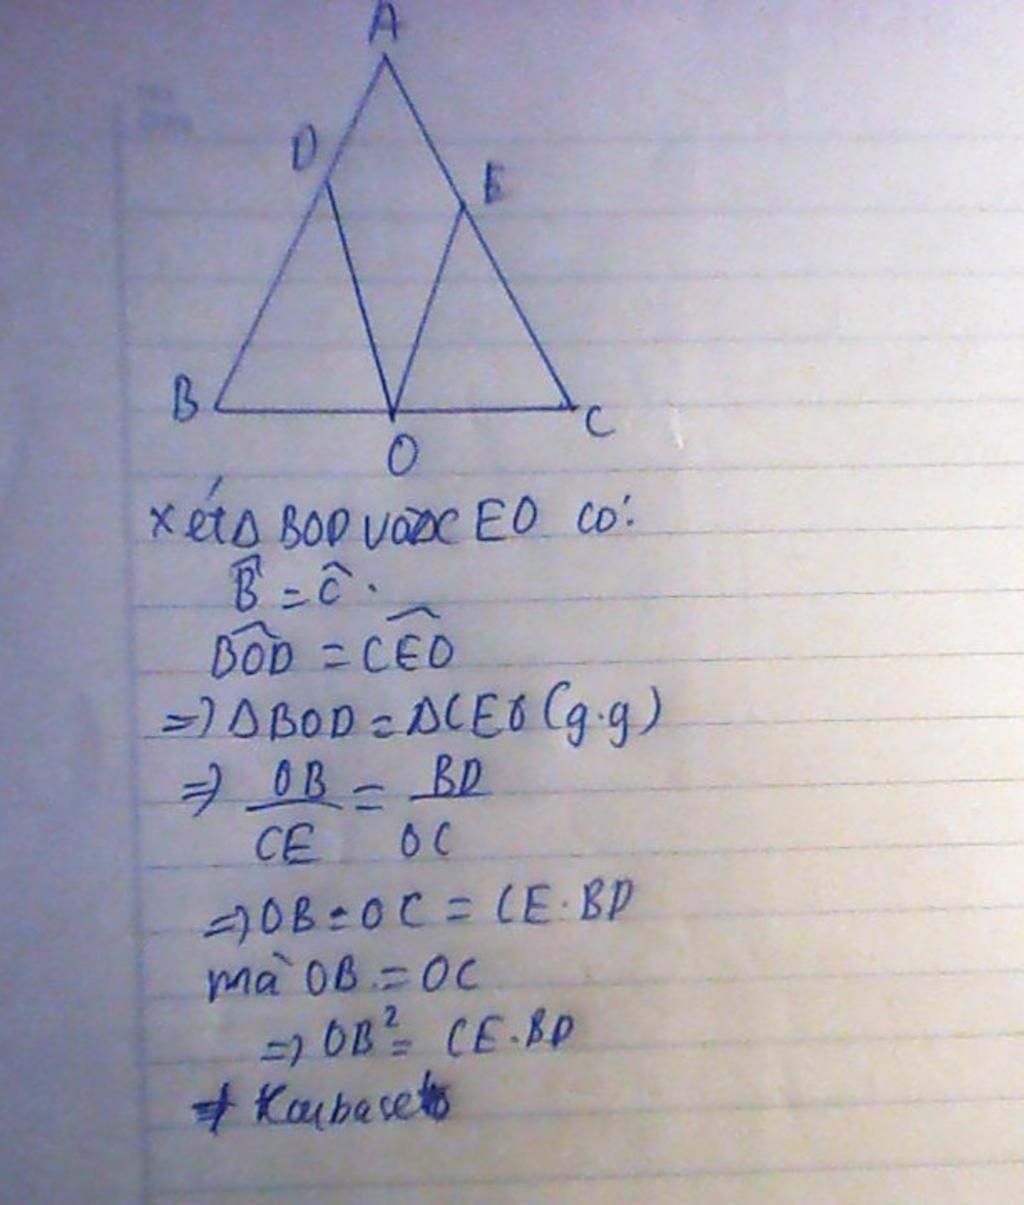 A
D
E
B
C
O
xét Δ BOD và ΔCEO có:
B̂ = Ĉ.
BÔD = CÊO
=> ΔBOD = ΔCEO (g.g)
=> OB/CE = BD/OC
=> OB = OC = CE.BD
mà OB = OC
=> OB² = CE.BD